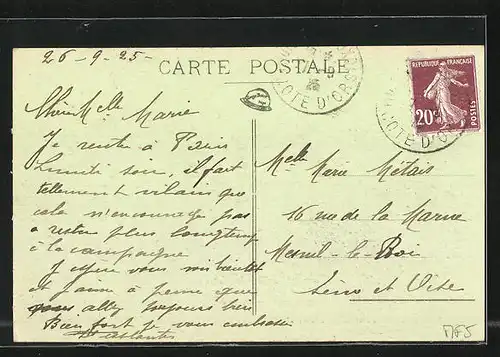 26-9-25-
CARTE POSTALE
COTE D'OR
REPUBLIQUE FRANÇAISE
20c
POSTES
COTE D'O
Chère Melle Marie
Je rentre à Paris
Lundi soir, il fait
tellement vilain que
cela n'encourage pas
a rester plus longtemps
à la campagne
J'espère vous voir bientôt
et j'aime à penser que
vous allez toujours bien
Bien fort je vous embrasse
Melle Marie Métais
16 rue de la Marne
Mesnil-le-Roi
Seine et Oise